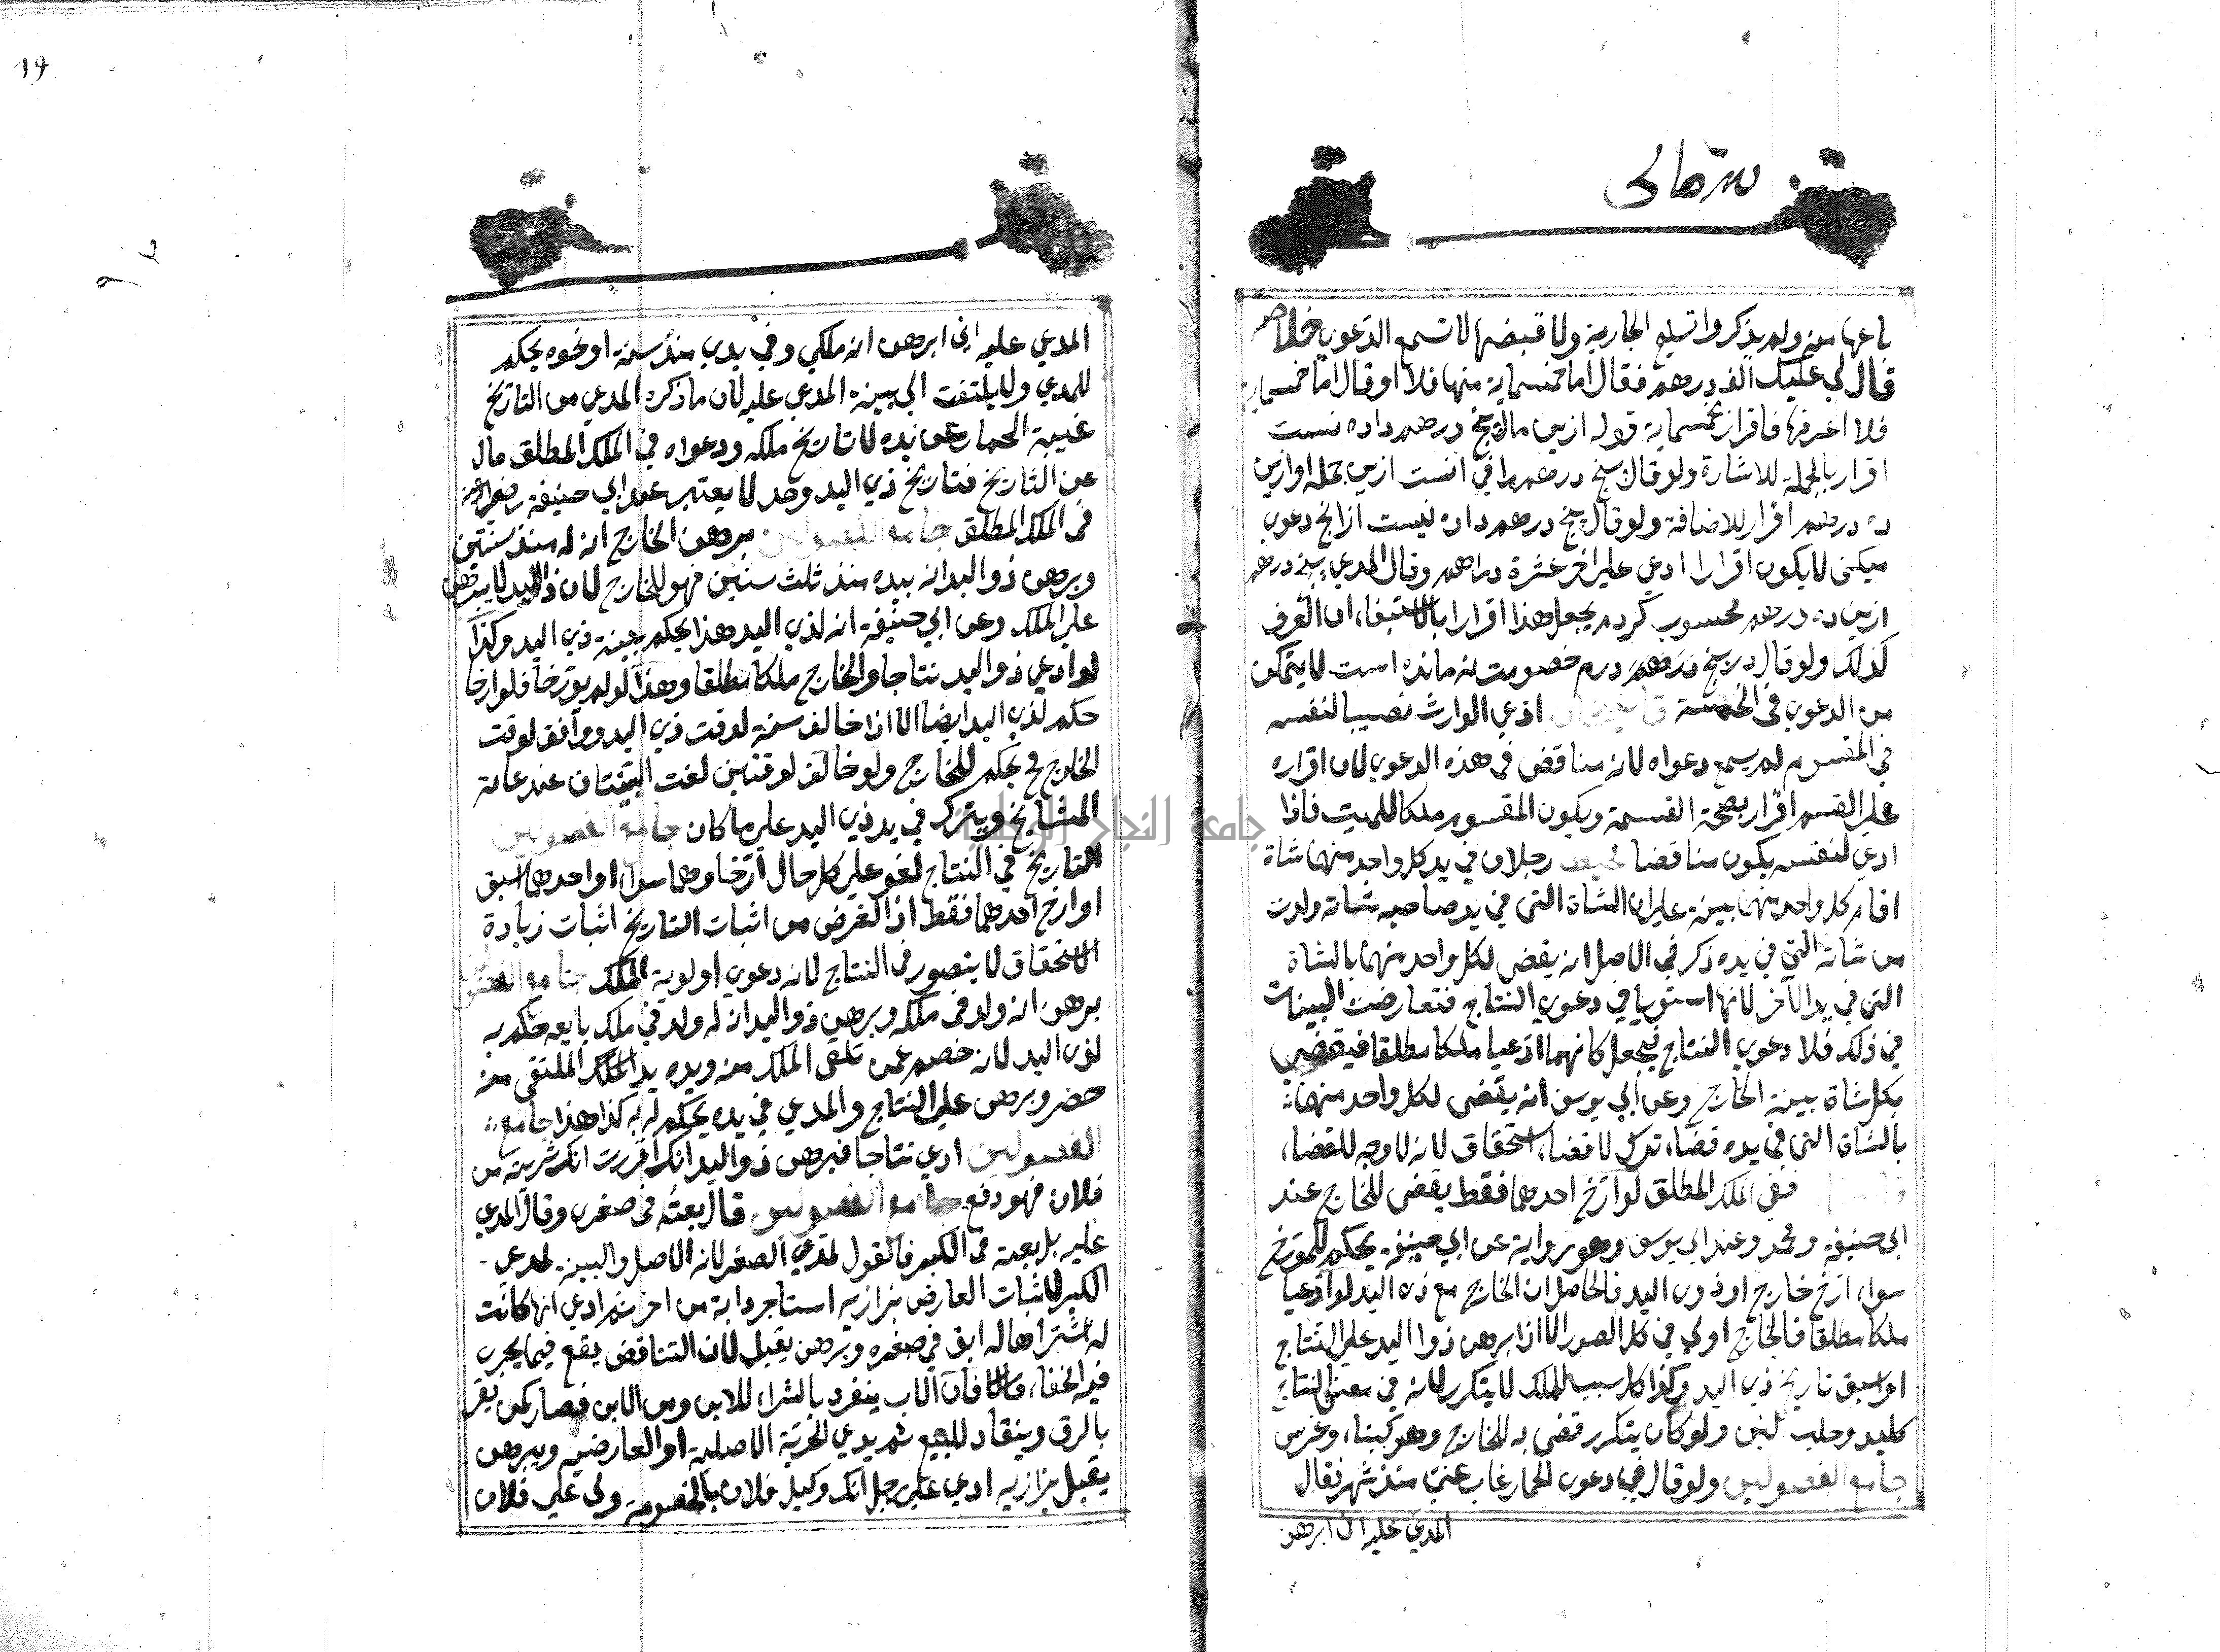 باعها منه ولم يذكروا تسليم الجارية ولا قبضها لا تسمع الدعوى خلاصه
قال لي عليك الف درهم فقال اما خمسماية منها فلا او قال اما خمسماية
فلا اعرفها فاقرار بخمسماية قوله ازين مال پنج درهم داده نست
اقرار بالجملة للاشارة ولو قال پنج درهم ازين جمله اوازين
ده درهم اقرار للاضافة ولو قال پنج درهم داده نيست ازانچ دعوى
ميكنى لا يكون اقرارا ادعى على اخر عشرة دراهم وقال المدعي پنج درهم
ازين ده درهم محسوب كردم يجعل هذا اقرارا بالاستيفاء ان العرف
كذلك ولو قال در پنج درهم درم خصومت نه مانده است لا يتمكن
من الدعوى في الخمسة ادعى الوارث نصيبا لنفسه
في المقسوم لم يسمع دعواه لانه مناقض في هذه الدعوى لان اقراره
على القسم اقرار بصحة القسمة ويكون المقسوم ملكا للميت فاذا
ادعى لنفسه يكون مناقضا رجلان في يد كل واحد منهما شاة
اقام كل واحد منهما بينة على ان الشاة التي في يد صاحبه شاته ولدت
من شاته التي في يده ذكر في الاصل انه يقضى لكل واحد منهما بالشاة
التي في يد الآخر لانهما استويا في دعوى النتاج فتعارضت البينات
في ذلك فلا دعوى النتاج فيجعل كانهما ادعيا ملكا مطلقا فيقضى
بكل شاة ببينة الخارج وعن ابي يوسف انه يقضى لكل واحد منهما
بالشاة التي في يده قضاء ترك لا قضاء استحقاق لانه لا وجه للقضاء
ففي الملك المطلق لو ارخ احدهما فقط يقضى للخارج عند
ابي حنيفة ومحمد وعند ابي يوسف وهو رواية عن ابي حنيفة يحكم للمورخ
سواء ارخ خارج او ذوى اليد فالحاصل ان الخارج مع ذي اليد لو ادعيا
ملكا مطلقا فالخارج اولى في كل الصور الا اذا برهن ذوا اليد على النتاج
او اسبق تاريخ ذي اليد وكذا كل سبب للملك لا يتكرر لانه في معنى النتاج
كلبد وحلب لبن ولو كان يتكرر قضى به للخارج وهو كبناء وغرس
جامع الفصولين ولو قال في دعوى الحمار غاب عني منذ شهر فقال
المدعي عليه انى ابرهن
المدعي عليه اني ابرهن انه ملكي وفي يدي منذ سنة او نحوه يحكم
للمدعي ولا يلتفت الى بينة المدعي عليه لان ما ذكره المدعي من التاريخ
غيبة الحمار عن يده لا تاريخ ملكه ودعواه في الملك المطلق خال
عن التاريخ فتاريخ ذي اليد وحد لا يعتبر عند ابي حنيفة رضي الله عنه
في الملك المطلق جامع الفصولين برهن الخارج انه له منذ سنتين
وبرهن ذو اليد انه بيده منذ ثلث سنين فهو للخارج لان ذا اليد لا يبرهن
على الملك وعن ابي حنيفة انه لذي اليد هذا يحكم ببينة ذي اليد وكذا
لو ادعى ذو اليد نتاجا والخارج ملكا مطلقا وهذا لو لم يورخا فلو ارخا
حكم لذي اليد ايضا الا اذا خالف سنة لوقت ذي اليد ووافق لوقت
الخارج فح يحكم للخارج ولو خالف لوقتين لغت البينتان عند عامة
المشايخ ويترك في يد ذي اليد على ما كان جامع الفصولين
التاريخ في النتاج لغو على كل حال ارخا وهما سواء او احدهما اسبق
او ارخ احدهما فقط اذ الغرض من اثبات التاريخ اثبات زيادة
الاستحقاق لا يتصور في النتاج لانه دعوى اولوية الملك جامع الفصولين
برهن انه ولد في ملكه وبرهن ذو اليد انه له ولد في ملك بايعه حكم به
لذى اليد لانه خصم عمن تلقى الملك منه ويده يد الملك المتلقى منه
حضر وبرهن على النتاج والمدعي في يده يحكم له به كذا هذا جامع
الفصولين ادعى نتاجا فبرهن ذو اليد انك اقررت انك شريته من
فلان فهو دفع جامع الفصولين قال بعته في صغرى وقال المدعي
عليه بل بعته في الكبر فالقول لمدعي الصغر لانه الاصل والبينة لمدعى
الكبر لاثبات العارض بزازيه استاجر دابة من اخر ثم ادعى انها كانت
له اشتراها له ابق في صغره وبرهن يقبل لان التناقض يقع فيما يجرى
فيه الخفاء فان الاب ينفرد بالشراء للابن ومن الابن فصار كمن يقر
بالرق وينقاد للبيع ثم يدعي الحرية الاصلية او العارضيه ويبرهن
يقبل بزازيه ادعى على رجل انك وكيل فلان بالخصومة ولى على فلان
جامعة النجاح الوطنية